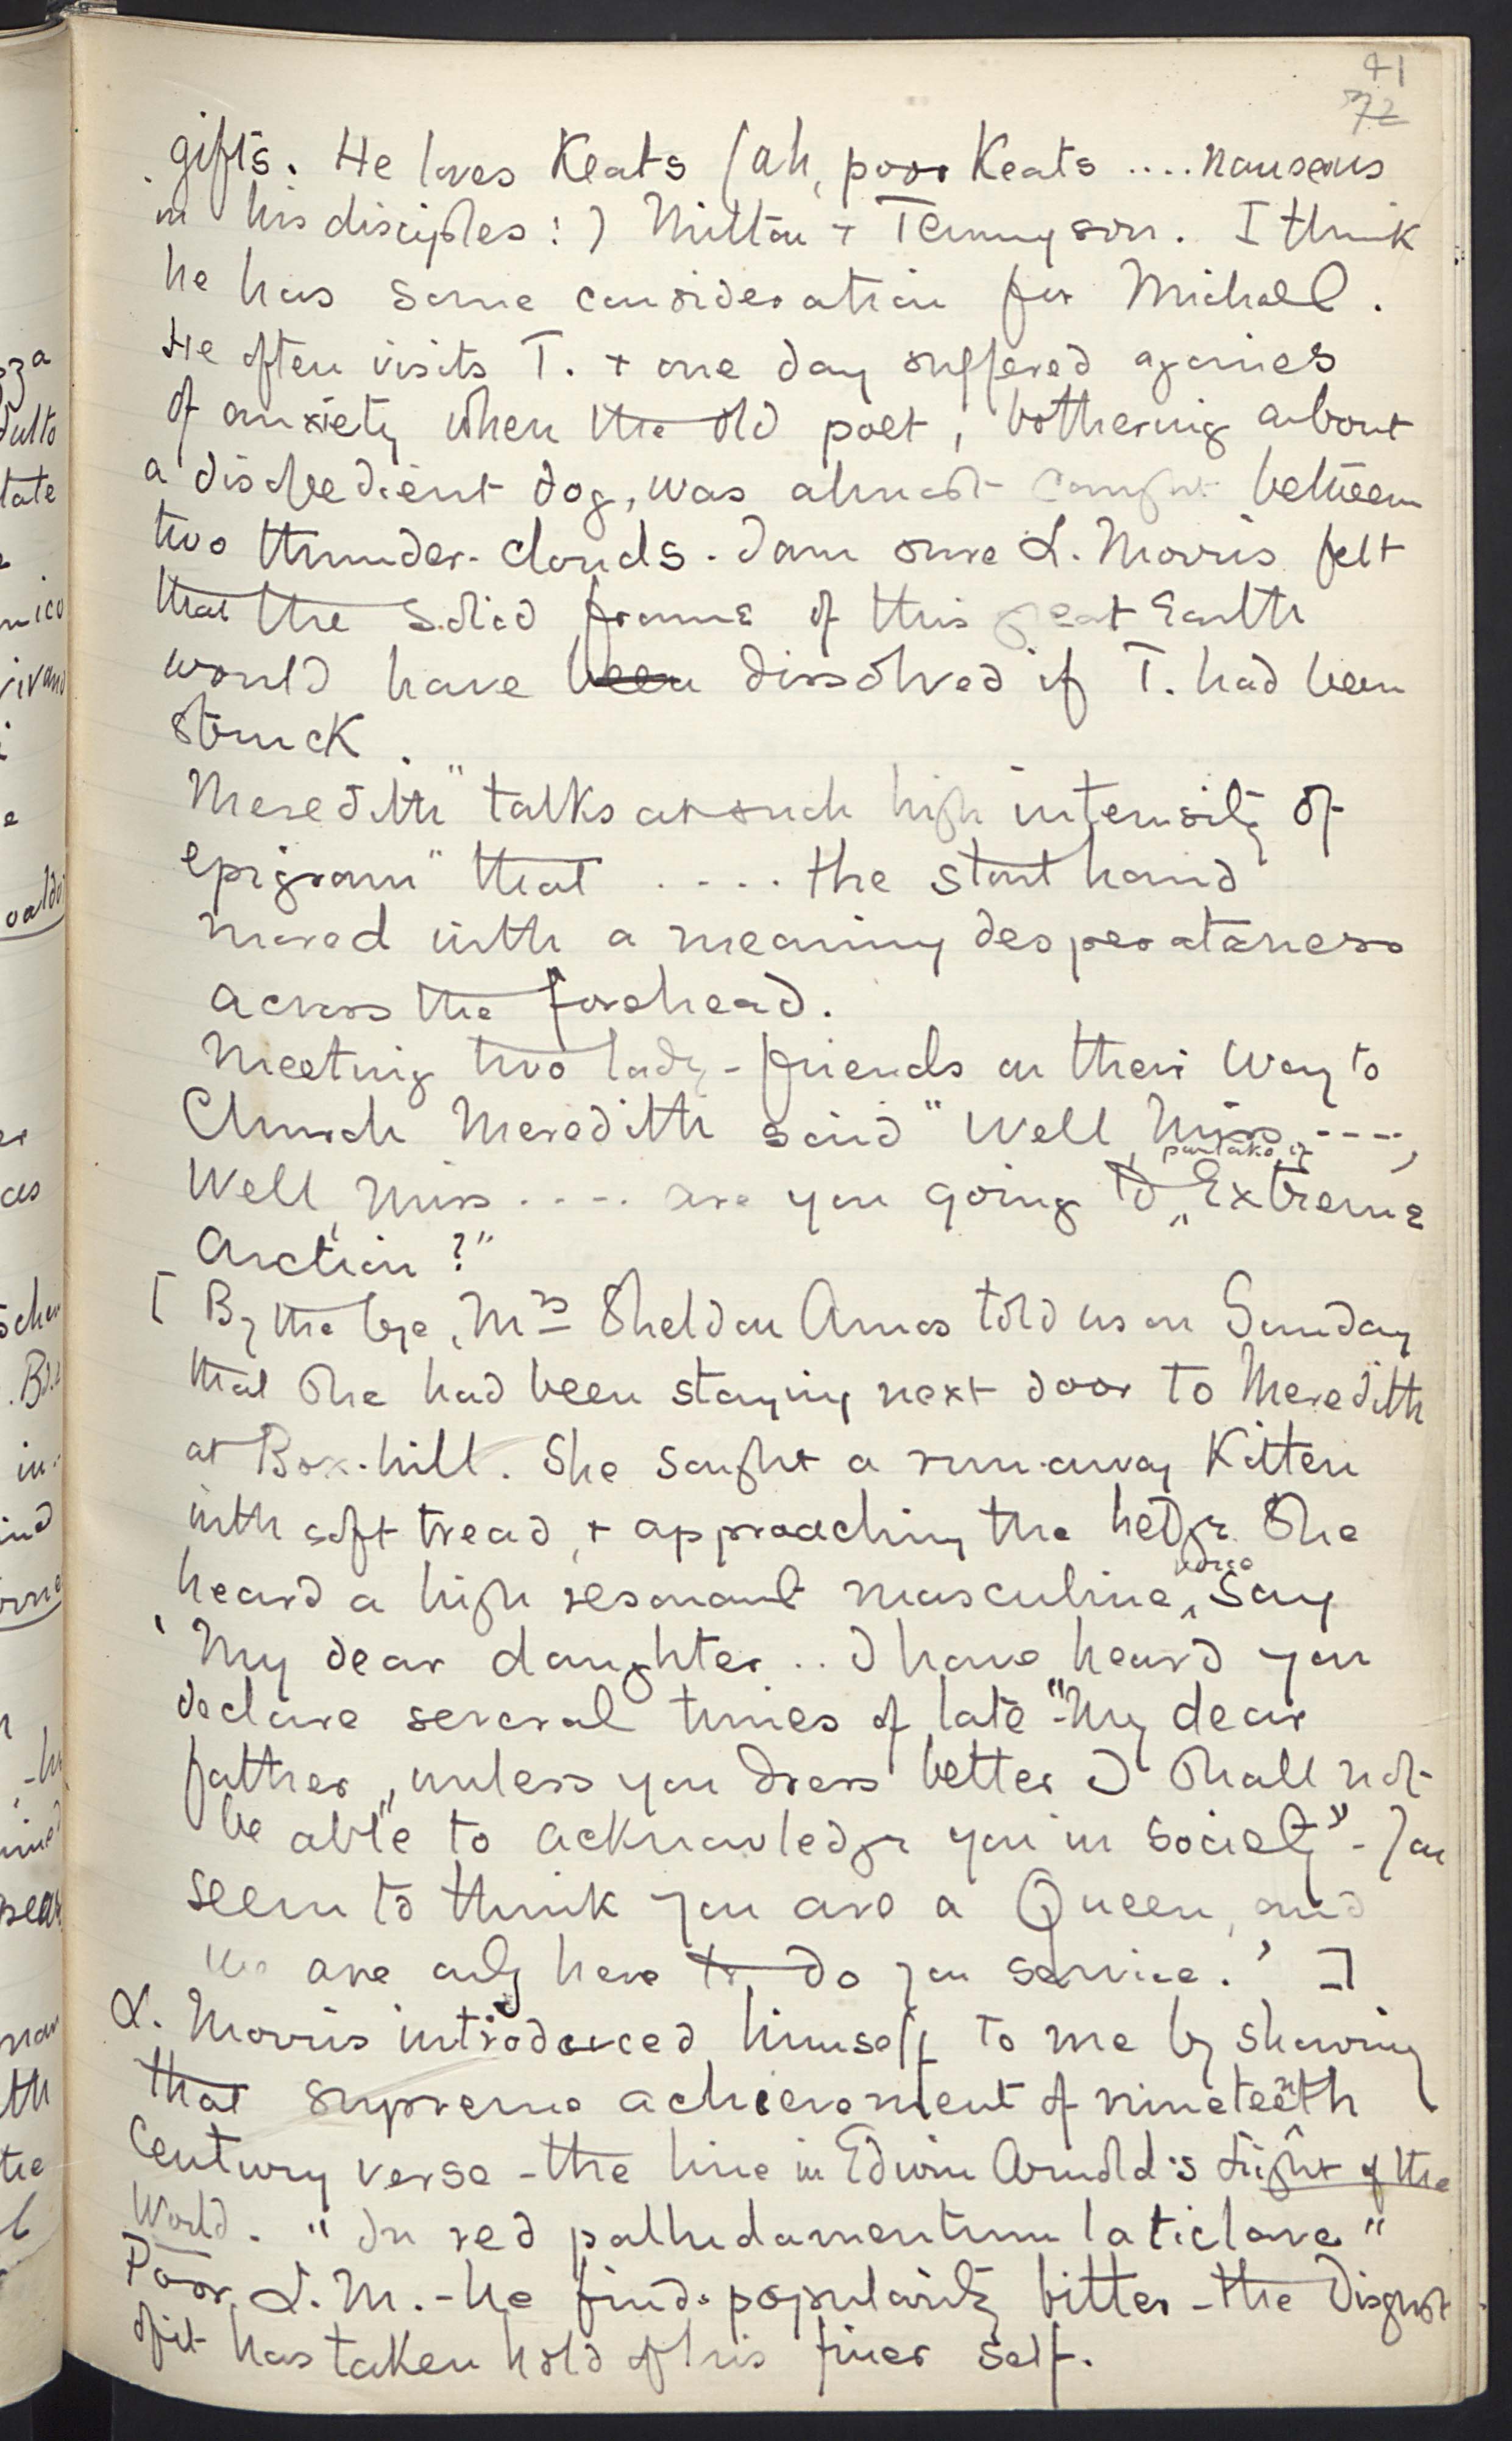 41
72
gifts. He loves Keats (ah, poor Keats .... nauseous
in his disciples!) Milton + Tennyson. I think
he has some consideration for Michael.
He often visits T. + one day suffered agonies
of anxiety when the old poet, bothering about
a disobedient dog, was almost caught between
two thunder-clouds. I am sure L. Morris felt
that the solid frame of this great Earth
would have been dissolved if T. had been
struck.
Meredith "talks at such high intensity of
epigram" that .... the stout hand
moved with a meaning desperateness
across the forehead.
Meeting two lady-friends on their way to
Church Meredith said "Well, Miss ----,
partake of
Well, Miss .... are you going to "Extreme
Unction?"
[ By the bye, Mrs Sheldon Amos told us on Sunday
that she had been staying next door to Meredith
at Box-hill. She sought a run-away Kitten
with soft tread, + approaching the hedge she
voice
heard a high resonant masculine say
'My dear daughter .. I have heard you
declare several times of late "My dear
father, unless you dress better I shall not
be able to acknowledge you in society" - You
seem to think you are a Queen, and
we are only here to do you service.' ]
L. Morris introduced himself to me by shewing
that supreme achievement of nineteenth
Century verse - the line in Edwin Arnold's Light of the
World. "In red palludamentum laticlave"
Poor L. M. - he finds popularity bitter - the disgust
of it has taken hold of his finer self.